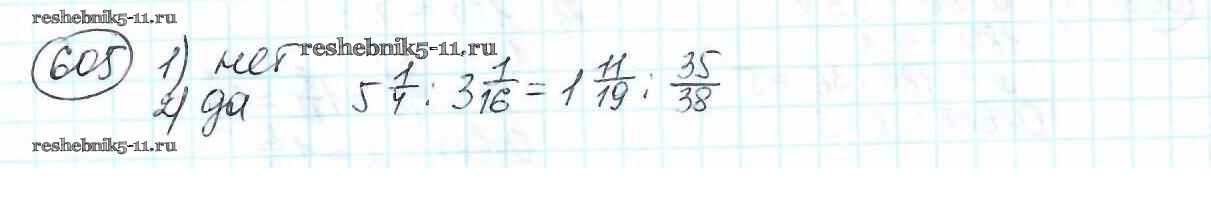 reshebnik5-11.ru
605 1) нет reshebnik5-11.ru
2) да 5 1/4 : 3 1/16 = 1 11/19 : 35/38
reshebnik5-11.ru